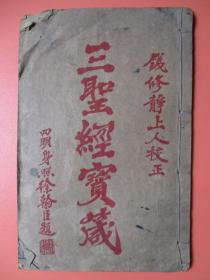 錢修靜上人校正
三聖經寶箴
四明身徐翰臣題